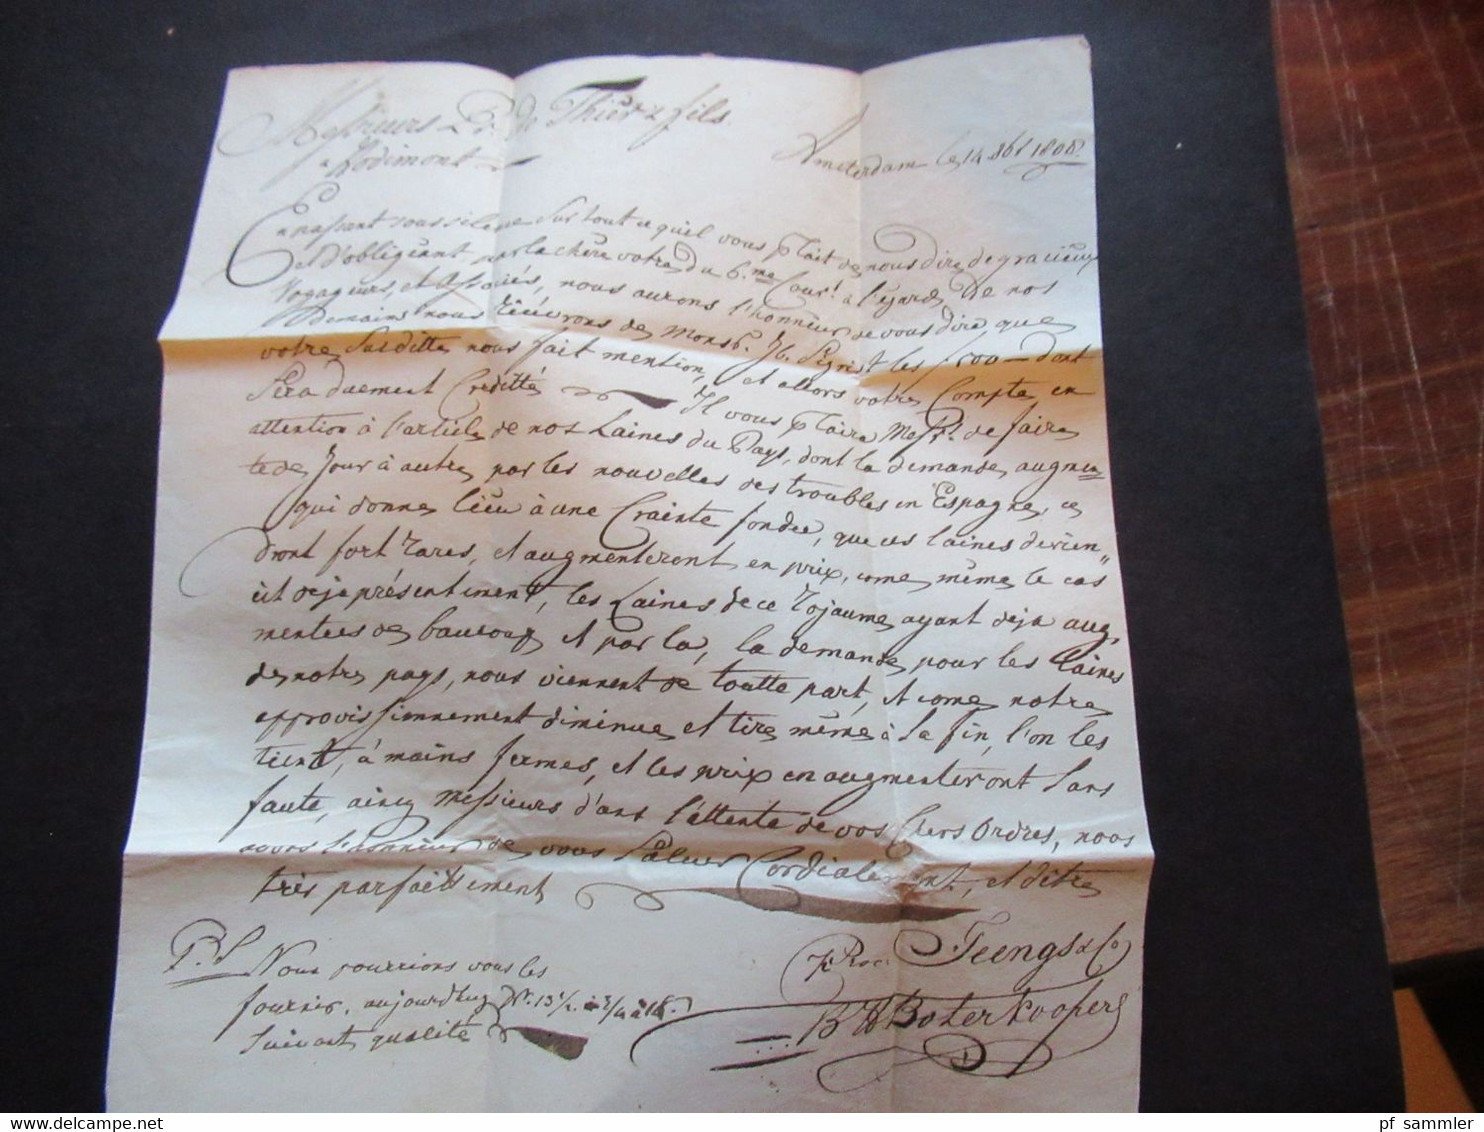 Messieurs Pre. Thier & fils.
a Hodimont
Amsterdam le 14 8br 1808
En passant sous silence sur tout ce qu'il vous plait de nous dire de gracieux
et d'obligeant par la chere votre du 6.me Cour.t à l'egard de nos
Voyageurs, et associés, nous aurons l'honneur de vous dire, que
demain nous recevrons de Mons.r J.b. Sigrist les f 700 — dont
votre Susditte nous fait mention, et allors votre Compte en
sera duement Creditté Il vous plaira Mess.rs de faire
attention à l'article de nos Laines du Pays, dont la demande augmen
te de Jour à autre par les nouvelles des troubles en Espagne, ce
qui donne lieu à une Crainte fondée, que ces laines devien„
dront fort rares, et augmenteront en prix, come même le cas
est deja présentement, les Laines de ce royaume ayant deja aug,
mentees de baucoup et par la, la demande pour les Laines
de notre pays, nous viennent de toutte part, et come notre
approvissionnement diminue et tire même à la fin, l'on les
tient, à mains fermes, et les prix en augmenteront sans
faute, aincy Messieurs d'ans l'attente de vos Chers Ordres, nous
avons l'honneur de vous saluer Cordialement, et d'etre
très parfaittement
P.S Nous pourrions vous les
fournir, aujourd'huy
suivant qualité
p Proc. Teengs & Co
B W Boterkooper
pf sammler